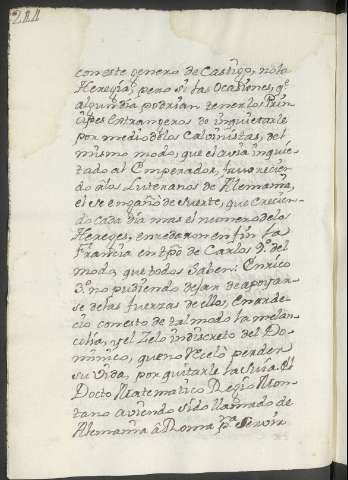 211
con este genero de Castigo, no la
Heregia; pero si las Ocasiones, q.e
algun dia podrian tener los Prin-
cipes entrangeros de inquietarle
por medio de los Calvinistas, del
mismo modo, que el avia inquie-
tado al Emperador, favorecien
do a los Luteranos de Alemania,
el se engañò de suerte, que crecien-
do cada dia mas el numero de los
Hereges, enredaron en fin la
Francia en tpõ de Carlos 9.º del
modo, que todos saben: Enrico
3.º no pudiendo dejar de apoyar-
se de las fuerzas de ellos, enarde-
cio con esto de tal modo la melan-
colia, y el Zelo indiscreto del Do-
minico, que no recelò perder
su vida, por quitarle la suia. El
Docto Matematico Regio Mon-
tano aviendo sido llamado de
Alemania à Roma p.a servir